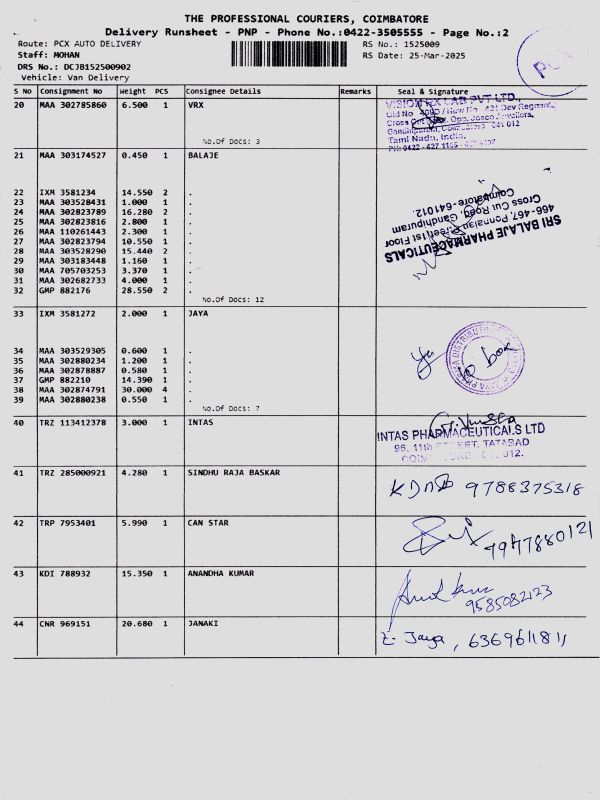 THE PROFESSIONAL COURIERS, COIMBATORE
Delivery Runsheet - PNP - Phone No.:0422-3505555 - Page No.:2
Route: PCX AUTO DELIVERY RS No.: 1525009
Staff: MOHAN RS Date: 25-Mar-2025
DRS No.: DCJB152500902
Vehicle: Van Delivery
PCX
S No Consignment No Weight PCS Consignee Details Remarks Seal & Signature
20 MAA 302785860 6.500 1 VRX
VISION RX LAB PVT LTD.,
Tamil Nadu, India.
No.Of Docs: 3
21 MAA 303174527 0.450 1 BALAJE
22 IXM 3581234 14.550 2 .
23 MAA 303528431 1.000 1 .
24 MAA 302823789 16.280 2 .
25 MAA 302823816 2.800 1 .
26 MAA 110261443 2.300 1 .
27 MAA 302823794 10.550 1 .
28 MAA 303528290 15.440 2 .
29 MAA 303183448 1.160 1 .
30 MAA 705703253 3.370 1 .
31 MAA 302682733 4.000 1 .
32 GMP 882176 28.550 2 .
SRI BALAJE PHARMACEUTICALS
466-467, Ponnaian Street 1st Floor
Cross Cut Road, Gandhipuram
Coimbatore-641012.
No.Of Docs: 12
33 IXM 3581272 2.000 1 JAYA
34 MAA 303529305 0.600 1 .
35 MAA 302880234 1.200 1 .
36 MAA 302878887 0.580 1 .
37 GMP 882210 14.390 1 .
38 MAA 302874791 30.000 4 .
39 MAA 302880238 0.550 1 .
10 box
No.Of Docs: 7
40 TRZ 113412378 3.000 1 INTAS
INTAS PHARMACEUTICALS LTD
96, 11th STREET, TATABAD
41 TRZ 285000921 4.280 1 SINDHU RAJA BASKAR
9788375318
42 TRP 7953401 5.990 1 CAN STAR
43 KDI 788932 15.350 1 ANANDHA KUMAR
9585082123
44 CNR 969151 20.680 1 JANAKI
Jaya, 6369611811